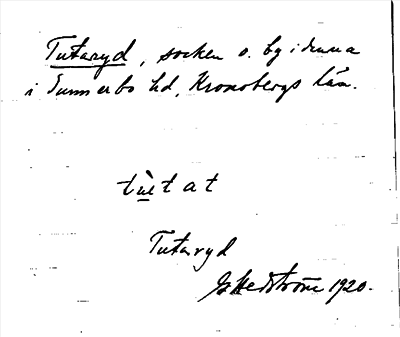 Tutaryd, socken o. by i denna
i Sunnerbo hd, Kronobergs län.
tùtat
Tutaryd
G Hedström 1920.